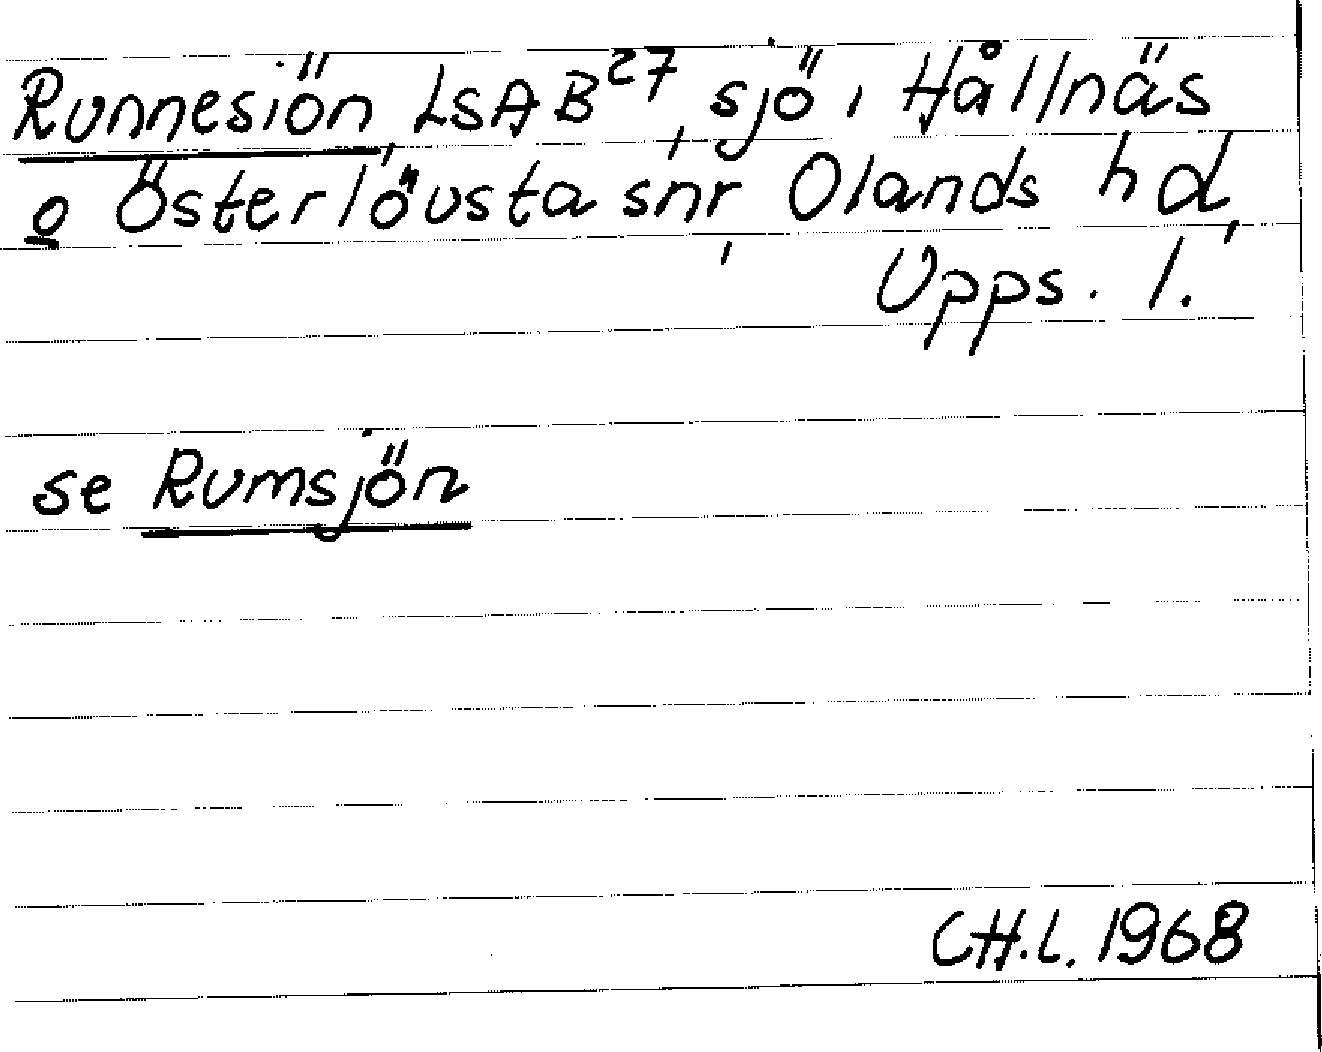 Runnesiön, LSAB²⁷, sjö i Hållnäs
o Österlövsta snr, Olands hd,
Upps. l.
se Rumsjön
CH.L. 1968